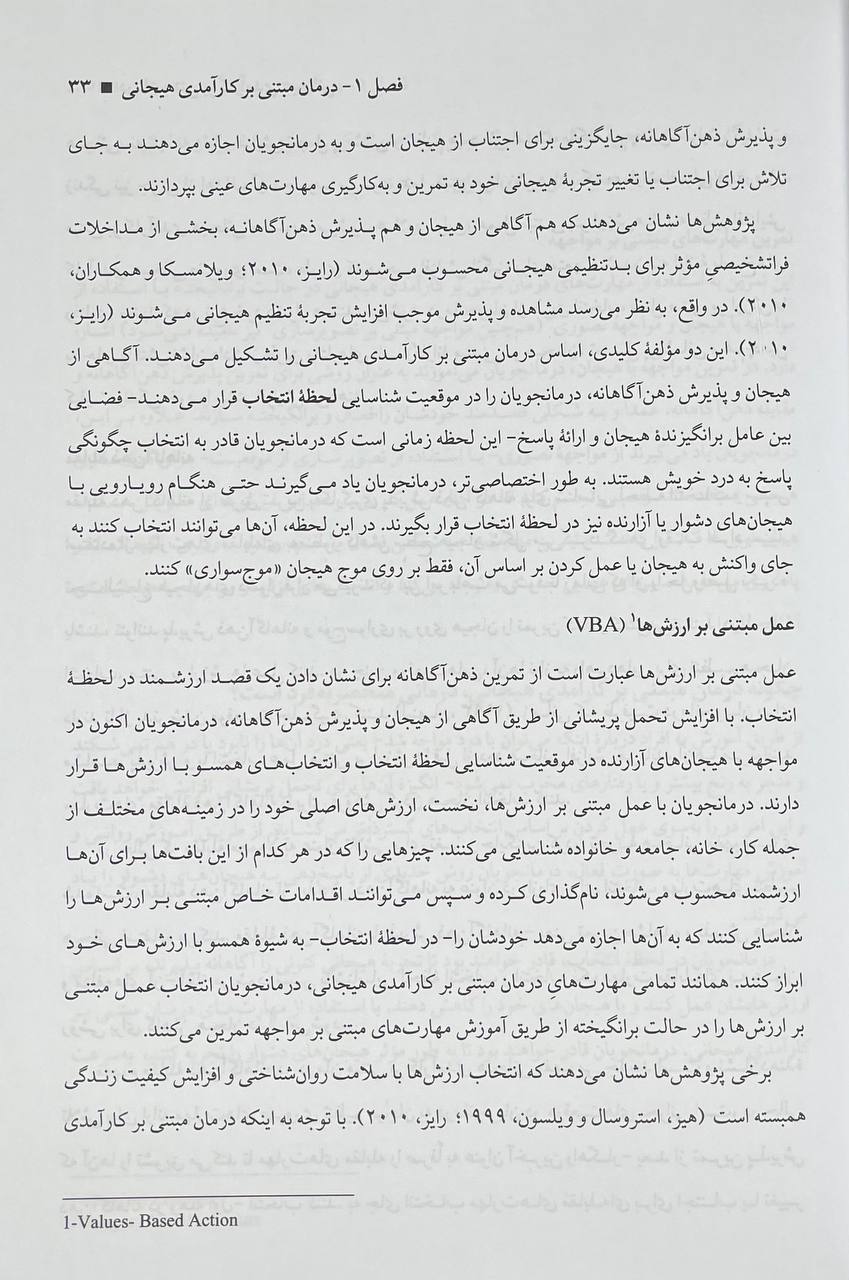 فصل ۱- درمان مبتنی بر کارآمدی هیجانی ■ ۳۳
و پذیرش ذهن‌آگاهانه، جایگزینی برای اجتناب از هیجان است و به درمانجویان اجازه می‌دهند به جای
تلاش برای اجتناب یا تغییر تجربهٔ هیجانی خود به تمرین و به‌کارگیری مهارت‌های عینی بپردازند.
پژوهش‌ها نشان می‌دهند که هم آگاهی از هیجان و هم پذیرش ذهن‌آگاهانه، بخشی از مداخلات
فراتشخیصیِ مؤثر برای بدتنظیمی هیجانی محسوب می‌شوند (رایز، ۲۰۱۰؛ ویلامسکا و همکاران،
۲۰۱۰). در واقع، به نظر می‌رسد مشاهده و پذیرش موجب افزایش تجربهٔ تنظیم هیجانی می‌شوند (رایز،
۲۰۱۰). این دو مؤلفهٔ کلیدی، اساس درمان مبتنی بر کارآمدی هیجانی را تشکیل می‌دهند. آگاهی از
هیجان و پذیرش ذهن‌آگاهانه، درمانجویان را در موقعیت شناسایی لحظهٔ انتخاب قرار می‌دهند- فضایی
بین عامل برانگیزندهٔ هیجان و ارائهٔ پاسخ- این لحظه زمانی است که درمانجویان قادر به انتخاب چگونگی
پاسخ به درد خویش هستند. به طور اختصاصی‌تر، درمانجویان یاد می‌گیرند حتی هنگام رویارویی با
هیجان‌های دشوار یا آزارنده نیز در لحظهٔ انتخاب قرار بگیرند. در این لحظه، آن‌ها می‌توانند انتخاب کنند به
جای واکنش به هیجان یا عمل کردن بر اساس آن، فقط بر روی موج هیجان «موج‌سواری» کنند.
عمل مبتنی بر ارزش‌ها۱ (VBA)
عمل مبتنی بر ارزش‌ها عبارت است از تمرین ذهن‌آگاهانه برای نشان دادن یک قصد ارزشمند در لحظهٔ
انتخاب. با افزایش تحمل پریشانی از طریق آگاهی از هیجان و پذیرش ذهن‌آگاهانه، درمانجویان اکنون در
مواجهه با هیجان‌های آزارنده در موقعیت شناسایی لحظهٔ انتخاب و انتخاب‌های همسو با ارزش‌ها قرار
دارند. درمانجویان با عمل مبتنی بر ارزش‌ها، نخست، ارزش‌های اصلی خود را در زمینه‌های مختلف از
جمله کار، خانه، جامعه و خانواده شناسایی می‌کنند. چیزهایی را که در هر کدام از این بافت‌ها برای آن‌ها
ارزشمند محسوب می‌شوند، نام‌گذاری کرده و سپس می‌توانند اقدامات خاص مبتنی بر ارزش‌ها را
شناسایی کنند که به آن‌ها اجازه می‌دهد خودشان را- در لحظهٔ انتخاب- به شیوهٔ همسو با ارزش‌های خود
ابراز کنند. همانند تمامی مهارت‌هایِ درمان مبتنی بر کارآمدی هیجانی، درمانجویان انتخاب عمل مبتنی
بر ارزش‌ها را در حالت برانگیخته از طریق آموزش مهارت‌های مبتنی بر مواجهه تمرین می‌کنند.
برخی پژوهش‌ها نشان می‌دهند که انتخاب ارزش‌ها با سلامت روان‌شناختی و افزایش کیفیت زندگی
همبسته است (هیز، استروسال و ویلسون، ۱۹۹۹؛ رایز، ۲۰۱۰). با توجه به اینکه درمان مبتنی بر کارآمدی
1-Values- Based Action